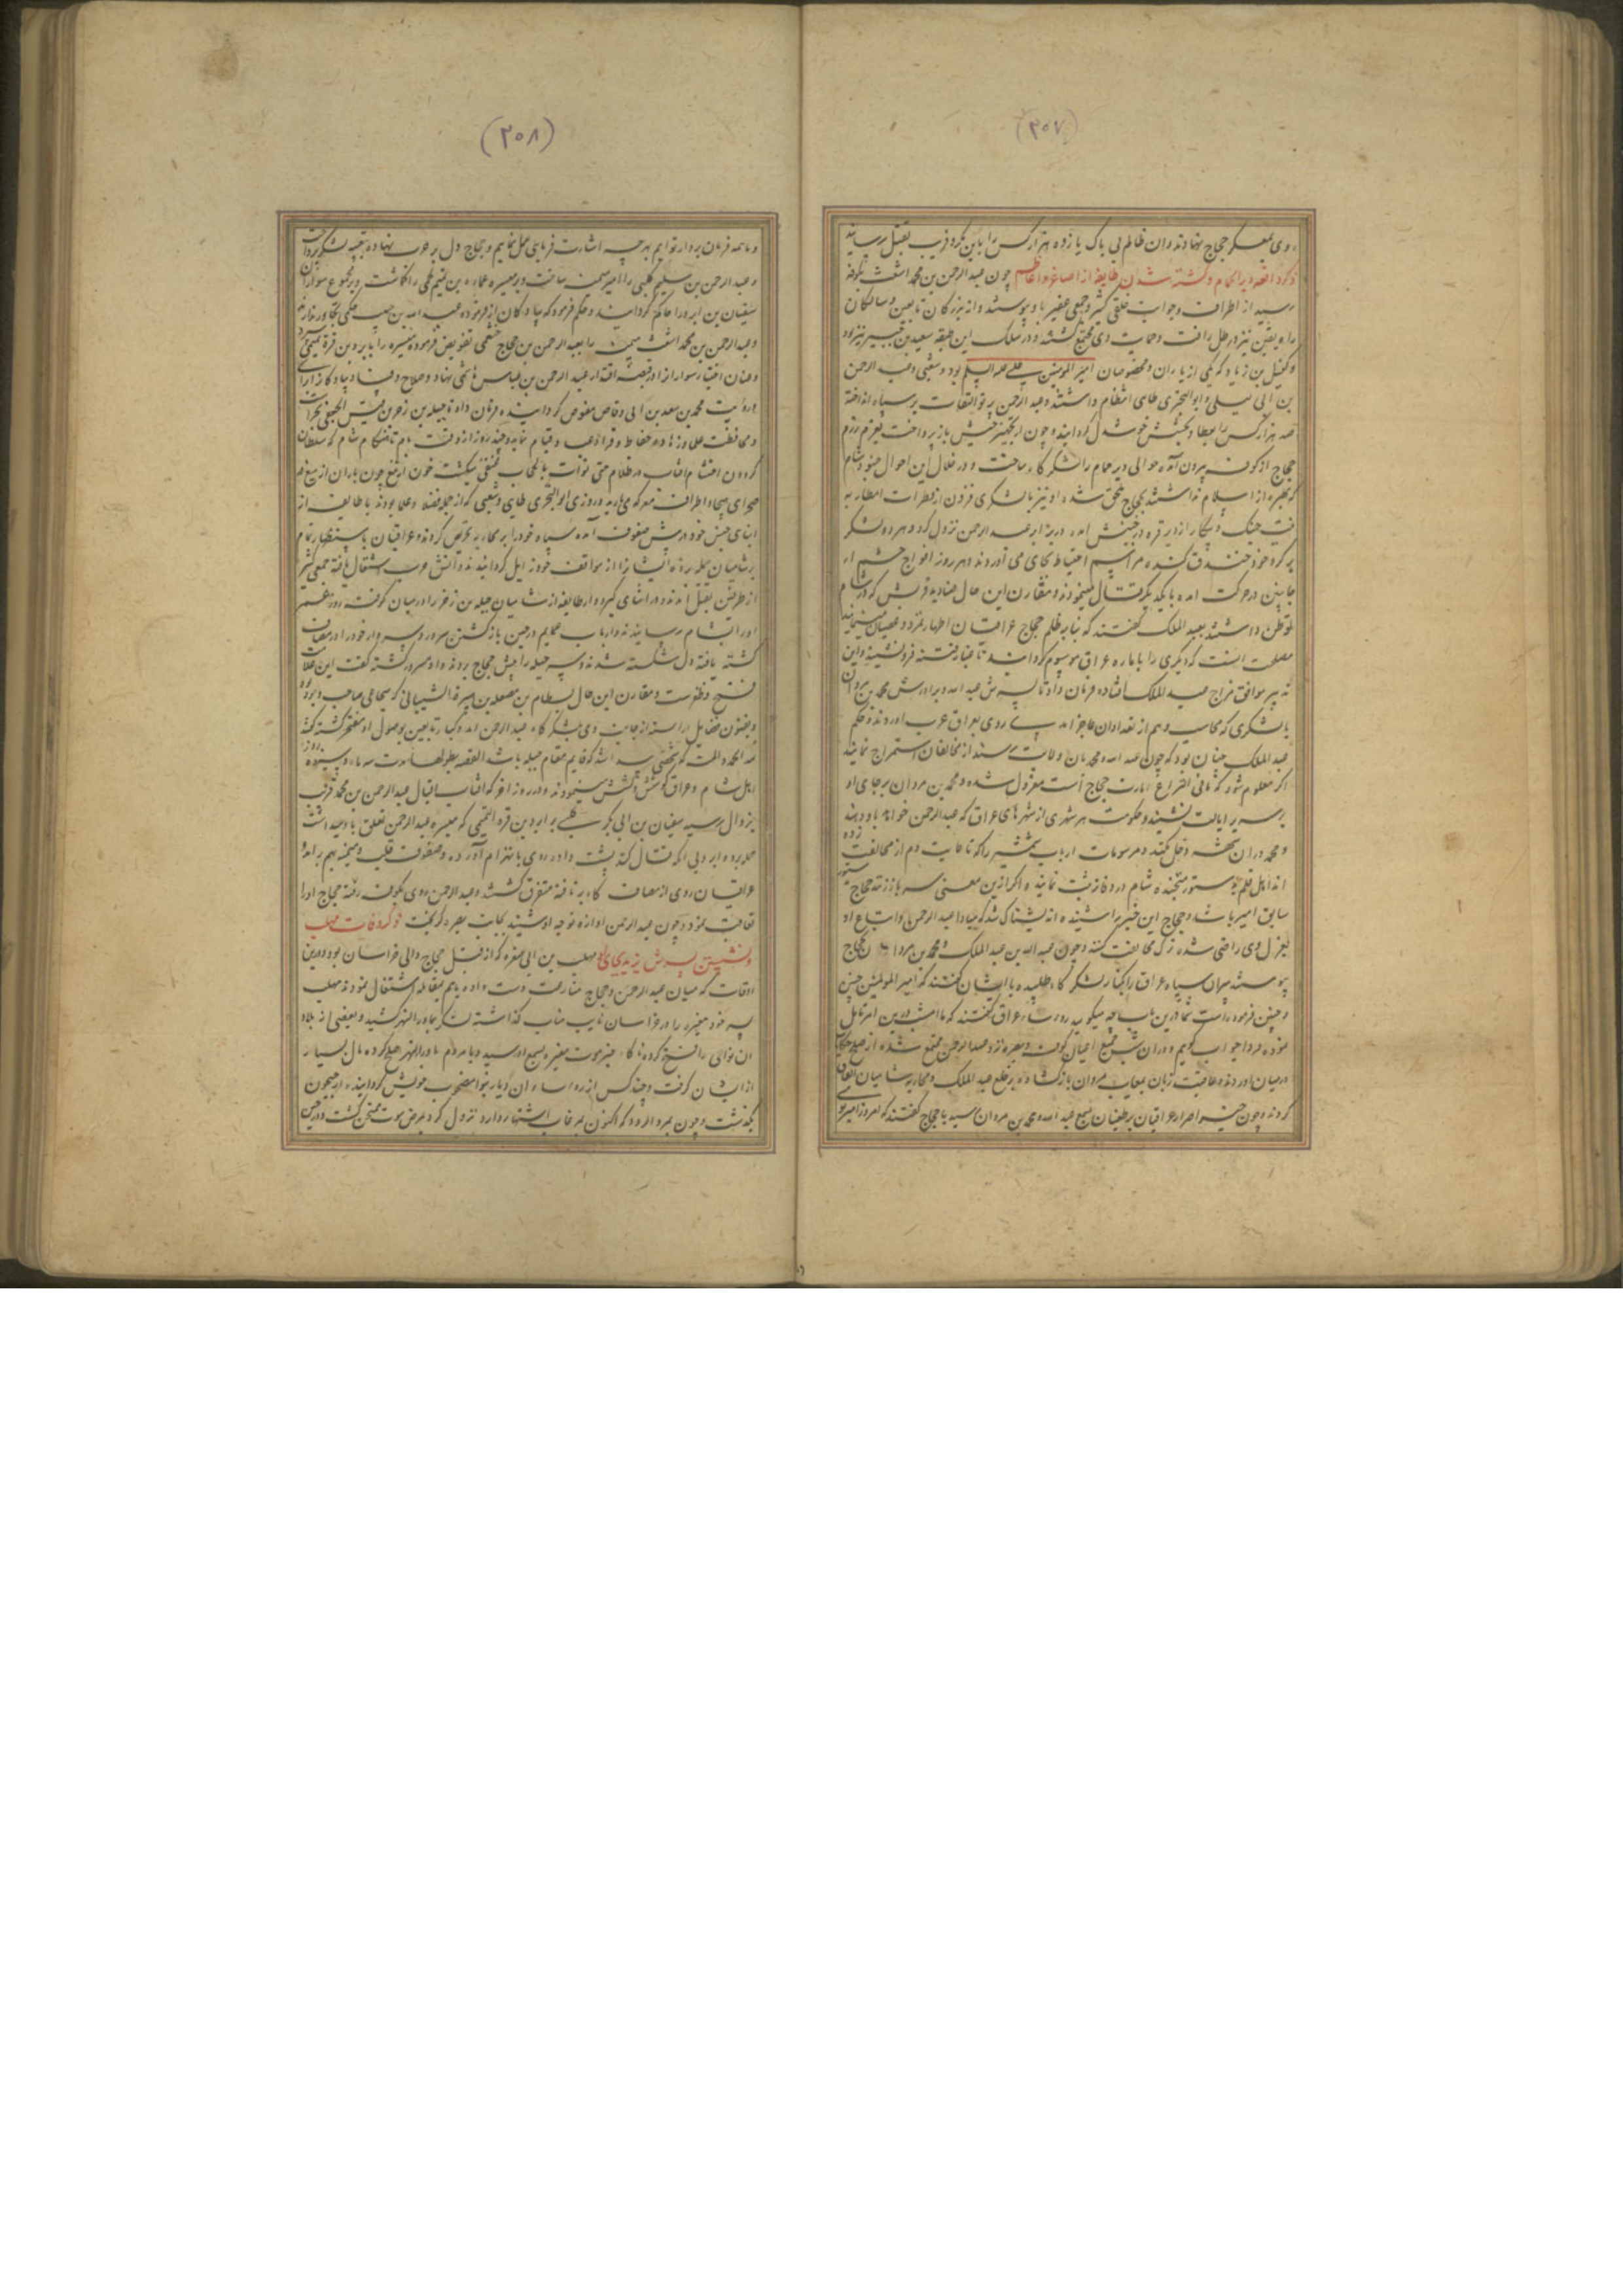 (٣٠٧)
روی بمعسکر حجاج نهادند و ان ظالم بی باک یازده هزار کس را باین مکر و فریب بقتل رسانید
ذکر واقعه دیرالجماجم و کشته شدن طایفه از اصاغر و اعاظم چون عبد الرحمن بن محمد اشعث بکوفه
رسید از اطراف و جوانب خلقی کثیر و جمعی غفیر باو پیوستند و از بزرکان تابعین و سالکان
راه یقین نیز در ظل رافت و حمایت وی مجتمع کشتند و در سلک این طبقه سعید بن جبیر نیز بود
و کمیل بن زیاد که یکی از یاران و مخصوصان امیر المومنین علی علیه السلم بود و شعبی و عبد الرحمن
بن ابی لیلی و ابو البختری طای انتظام داشتند و عبد الرحمن پرتو التفات بر سپاه انداخته
صد هزار کس را بعطا و بخشش خوشدل کردانید و چون از تجهیز جیش باز پرداخت بعزم رزم
حجاج از کوفه بیرون آمده حوالی دیر جماجم را لشکر کاه ساخت و در خلال این احوال جنود شام
که بهره از اسلام نداشتند بحجاج ملحق شده او نیز با لشکری فزون از قطرات امطار به
نیت جنک و پیکار از دیر قره در جنبش امده در برابر عبد الرحمن نزول کرد و هر دو لشکر
بر کرد خود خندق کنده مراسم احتیاط بجای می آوردند و هر روز افواج حشم از
جانبین در حرکت امده با یکدیکر قتال مینمودند و مقارن این حال صنادید قریش که در شام
توطن داشتند بعبد الملک کفتند که بنا بر ظلم حجاج عراقیان اظهار تمرد و عصیان مینمایند
مصلحت انست که دیکری را بامارت عراق موسوم کردانند تا غبار فتنه فرو نشیند و این
تدبیر موافق مزاج عبد الملک افتاده فرمان داد تا پسرش عبد الله و برادرش محمد بن مروان
با لشکری که محاسب وهم از تعداد ان عاجز امدی روی بعراق عرب اوردند و حکم
عبد الملک چنان بود که چون عبد الله و محمد بان ولایت رسند از مخالفان استمزاج نمایند
اکر معلوم شود که مانی النزاع امارت حجاج است معزول شده و محمد بن مروان بر جای او
بر سریر ایالت نشیند و حکومت هر شهری از شهرهای عراق که عبد الرحمن خواهد باو دهند
و محمد دران شهر دخل نکند و مرسومات ارباب شمشیر را که تا غایت دم از مخالفت زده
اند اهل قلم بدستور متجنده شام در دفاتر ثبت نمایند و اکر ازین معنی سر باز زنند حجاج بدستور
سابق امیر باشد و حجاج این خبر را شنیده اندیشناک شد که مبادا عبد الرحمن و اتباع او
بعزل وی راضی شده ترک مخالفت کنند و چون عبد الله بن عبد الملک و محمد بن مروان بحجاج
پیوستند سران سپاه عراق را بکنار لشکر کاه طلبیده با ایشان کفتند که امیر المومنین چنین
و چنین فرموده است شما درین باب چه میکویید روساء عراق کفتند که ما امشب درین امر تامل
نموده فردا جواب کوییم و دران شب جمیع اعیان کوفه و بصره نزد عبد الرحمن مجتمع شده از صلح حکایت
در میان اوردند و عاقبت زبان بمعایب مروان باز کشاده بر خلع عبد الملک و محاربه شامیان اتفاق
کردند و چون خبر اصرار عراقیان بر طغیان بسمع عبد الله و محمد بن مروان رسید با حجاج کفتند که امروز امیر تویی
(٣٠٨)
و ما همه فرمان بردار توایم بهر چه اشارت فرمایی عمل نماییم و حجاج دل بر حرب نهاده بتعبیه لشکر پرداخت
و عبد الرحمن بن سلیم کلبی را امیر میمنه ساخت و بر میسره عماره بن تمیم لخمی را کماشت و بر مجموع سواران
سفیان بن ابرد را حاکم کردانید و حکم فرمود که پیادکان از فرموده عبد الله بن حبیب حکمی تجاوز ننمایند
و عبد الرحمن بن محمد اشعث میمنه را بعبد الرحمن بن حجاج خثعمی تفویض فرموده میسره را بابرد بن قره تمیمی سپرد
و عنان اختیار سواران را در قبضه اقتدار عبد الرحمن بن عباس هاشمی نهاد و صلاح و فساد پیادکان را برای
و رویت محمد بن سعد بن ابی وقاص مفوض کردانیده فرمان داد تا جبله بن زحر بن قیس الجعفی بحراست
و محافظت علما و زهاد و حفاظ و قراء قیام نماید و چند روز از وقت بام تا هنکام شام که سلطان
کردون احتشام افتاب در ظلام حتی توارت بالحجاب مختفی میکشت خون از تیغ چون باران از میغ در
صحرای هیجا و اطراف معرکه می بارید روزی ابو البختری طای و شعبی که از جمله فضلا و علما بودند با طایفه از
ابنای جنس خود در پیش صفوف آمده سپاه خود را بر محاربه تحریص کردند و عراقیان باستظهار تمام
بر شامیان حمله برده ایشان را از مواقف خود زایل کردانیدند و اتش حرب اشتعال یافته جمعی کثیر
از طرفین بقتل آمدند و در اثنای کیر و دار طایفه از شامیان جبله بن زحر را در میان کرفته
او را باتمام رسانیدند و ارباب عمایم در حین باز کشتن سرور و سردار خود را در مصاف
کشته یافته دل شکسته شدند و سر جبله را پیش حجاج بردند و او مسرور کشته کفت این علامت
فتح و ظفرست و مقارن این حال بسطام بن مصقله بن هبیره الشیبانی که شجاعی صاحب وجود بوده
و بفنون فضایل اراسته از جانب ری بلشکرکاه عبد الرحمن امد و کبار تابعین بوصول او مفتخر کشته کفتند
لله الحمد و المنت که شخصی رسید که قایم مقام جبله باشد القصه بطولها مدت سه ماه و سیزده روز
اهل شام و عراق کوشش و کشش مینمودند و در روز اخر که افتاب اقبال عبد الرحمن بن محمد قریب
بزوال رسید سفیان بن ابی بکر کلبی بر ابرد بن قره التمیمی که میسره عبد الرحمن تعلق باو میداشت
حمله برد و ابرد بی انکه قتال کند پشت داده روی بانهزام آورد و صفوف قلب و میمنه بهم برامد
عراقیان روی از مصاف کاه بر تافته متفرق کشتند و عبد الرحمن روی بکوفه رفته حجاج او را
تعاقب نمود و چون عبد الرحمن اوازه توجه او شنید بجانب بصره کریخت ذکر وفات مهلب
و نشستن پسرش یزید بجای او مهلب بن ابی صفره که از قبل حجاج والی خراسان بود درین
اوقات که میان عبد الرحمن و حجاج منازعت دست داده باهم بمقاتله اشتغال نمودند مهلب
پسر خود مغیره را در خراسان نایب مناب کذاشته لشکر بماورالنهر کشید و بعضی از بلاد
ان نواحی را فتح کرده ناکاه خبر موت مغیره بسمع او رسید و با مردم ماورالنهر صلح کرده مال بسیار
از ایشان کرفت و چند کس از روساء ان دیار نوا مصحوب خویش کردانیده از جیحون
بکذشت و چون بمرو الرود که اکنون بمرغاب اشتهار دارد نزول کرد بمرض موت ممتحن کشت و در حین